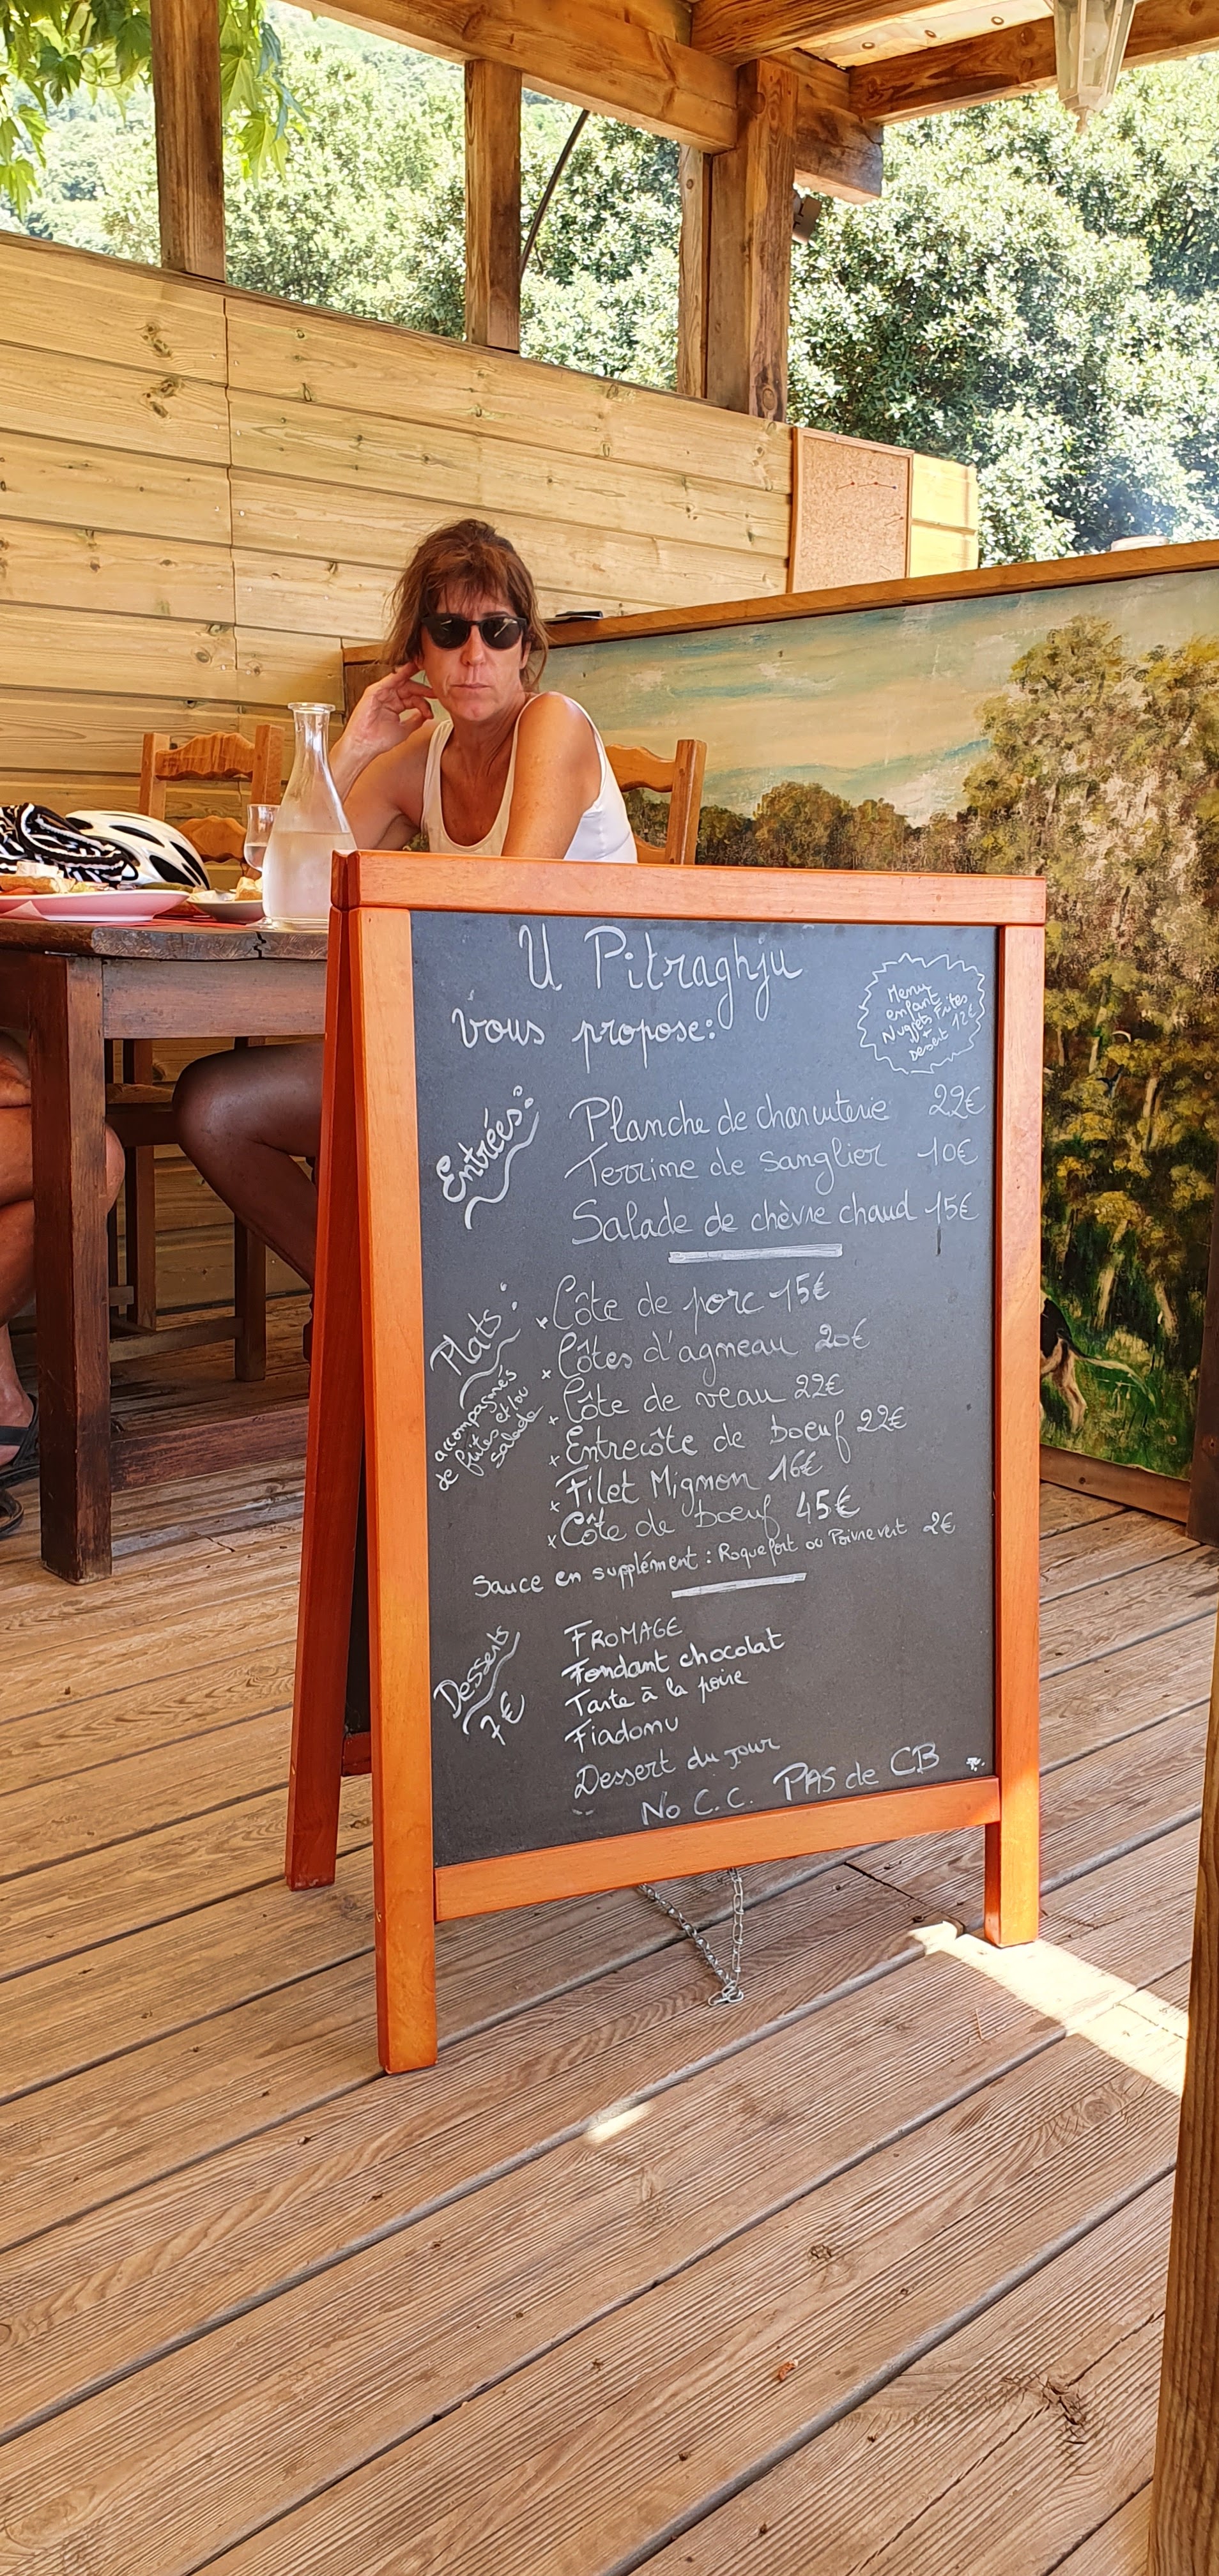 U Pitraghju
vous propose:
Menu
enfant
Nuggets Frites
+
Dessert 12€
Entrées:
Planche de charcuterie 22€
Terrine de sanglier 10€
Salade de chèvre chaud 15€
Plats:
accompagnés
de frites et/ou
salade
x Côte de porc 15€
x Côtes d'agneau 20€
x Côte de veau 22€
x Entrecôte de boeuf 22€
x Filet Mignon 16€
x Côte de boeuf 45€
Sauce en supplément : Roquefort ou Poivre vert 2€
Desserts
7€
FROMAGE
Fondant chocolat
Tarte à la poire
Fiadonu
Dessert du jour
No C.C. PAS de CB